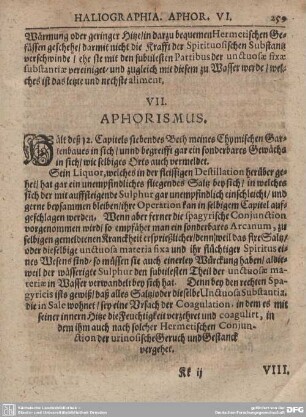 HALIOGRAPHIA. APHOR. VI. 259
Wärmung oder geringer Hitze/in darzu bequemen Hermetischen Ge-
fässen geschehe/ darmit nicht die Krafft der Spirituosischen Substantz
verschwinde / ehe sie mit den subtilesten Partibus der unctuosæ fixæ
substantiæ vereiniget/ und zugleich mit diesem zu Wasser werde / wel-
ches ist das letzte und nechste aliment.
VII.
APHORISMUS.
Hält deß 32. Capitels siebendes Beth meines Chymischen Gar-
tenbaues in sich/ unnd begreifft gar ein sonderbares Gewächs
in sich/ wie selbiges Orts auch vermeldet.
Sein Liquor, welches in der fleissigen Destillation herüber ge-
het/ hat gar ein unempfindliches fliegendes Saltz bey sich/ in welches
sich der mit auffsteigende Sulphur gar unempfindlich einschleicht/ und
gerne beysammen bleiben/ ihre Operation kan in selbigem Capitel auf-
geschlagen werden. Wenn aber ferner die spagyrische Conjunction
vorgenommen wird/ so empfähet man ein sonderbares Arcanum, zu
selbigen gemeldten Kranckheit ersprießlicher/ denn/weil das fixe Saltz/
oder dieselbige unctuosa materia fixa und ihr flüchtiger Spiritus ei-
nes Wesens sind/ so müssen sie auch einerley Würckung haben/ al die-
weil der wässerigte Sulphur den subtilesten Theil der unctuosæ mate-
riæ in Wasser verwandelt bey sich hat. Denn bey den rechten Spa-
gyricis ists gewiß/ daß alles Saltz oder dieselbe Unctuosa Substantia,
die in Sale wohnet / sey eine Ursach der Coagulation, in dem es mit
seiner innern Hitze die Feuchtigkeit verzehret und coagulirt, in
dem ihm auch nach solcher Hermetischen Conjun-
ction der urinosische Geruch und Gestanck
vergehet.
Kk ij VIII.